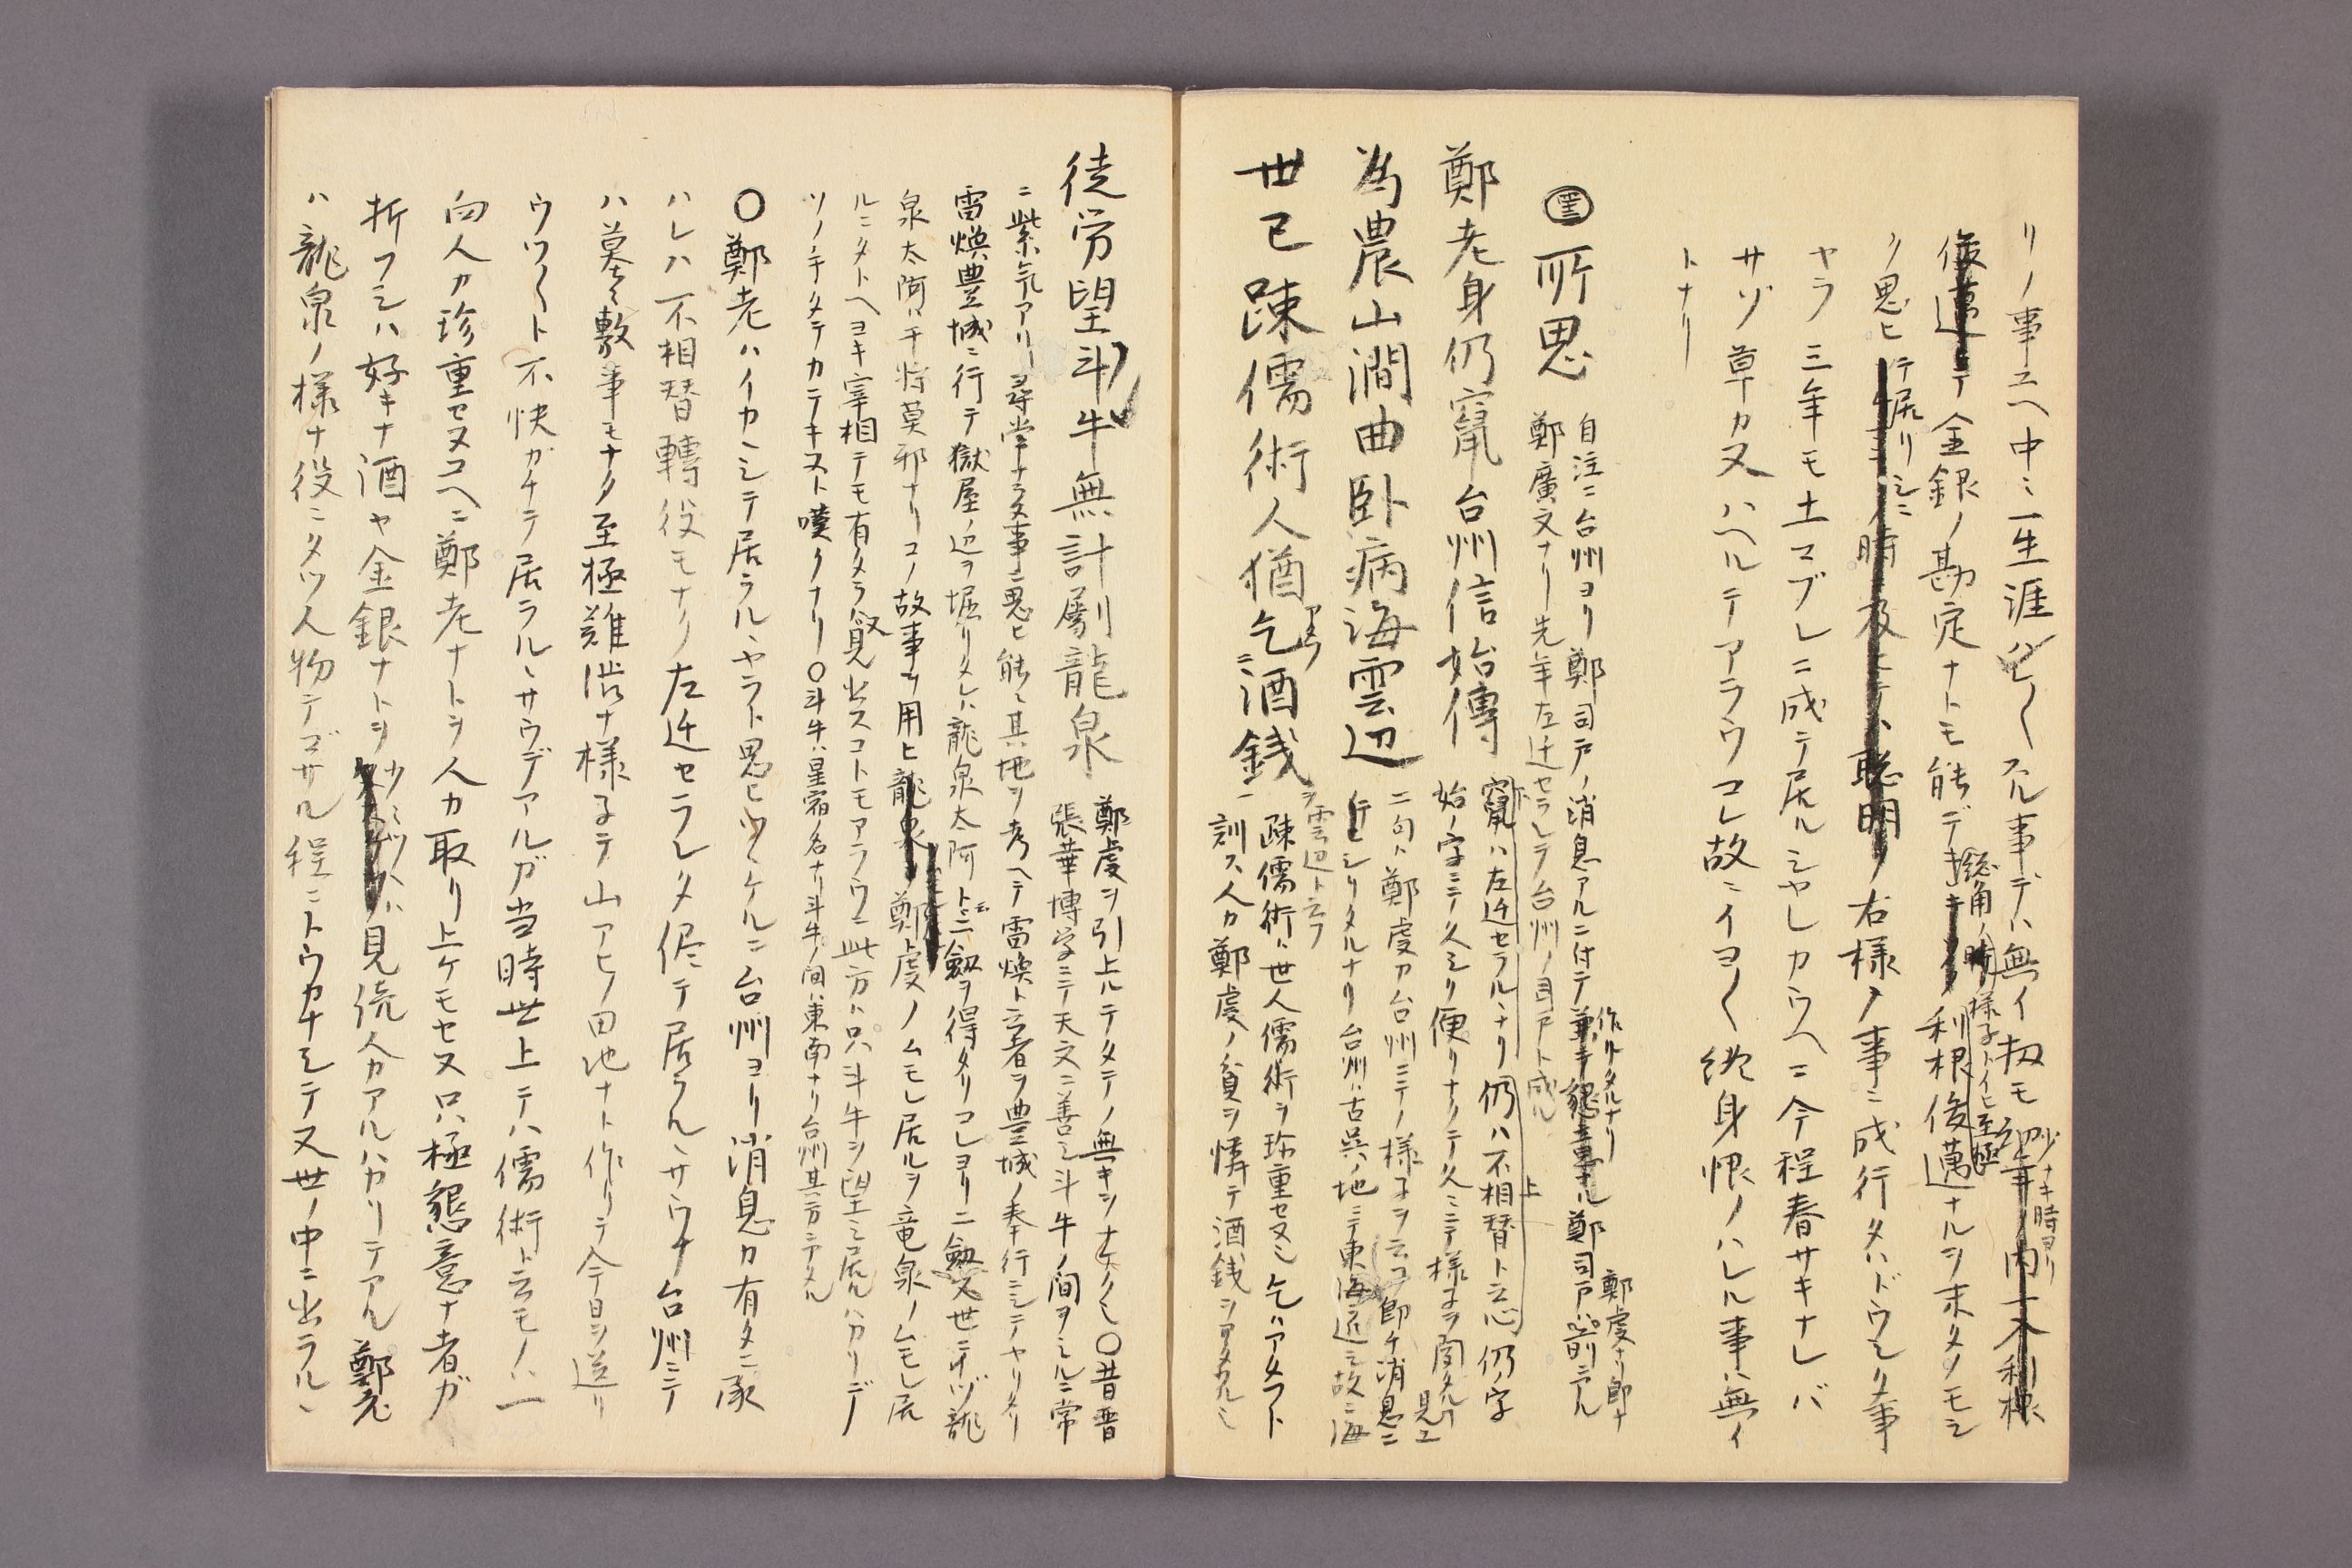 リノ事ユヘ中ニ一生涯ハヒ〱スル事デハ無イ扨モ
少ナキ時ヨリ
金銀ノ勘定ナトモ能デキ
総角ノ時ノ様子トイヒ至極
利根俊邁ナルヲ末タノモシ
ク思ヒテ居リシニ
右様ノ事ニ成行タハドウシタ事
ヤラ三年モ土マブレニ成テ居ルシヤレカウヘニ今程春サキナレバ
サゾ草カ又ハヘルテアラウコレ故ニイヨ〱終身恨ノハレル事ハ無イ
トナリ
所思
自注ニ台州ヨリ鄭司戸ノ消息アルニ付テ
作リタルナリ
鄭司戸ハ前ニアル
鄭虔ナリ即チ
鄭廣文ナリ先年左迁セラレテ台州ノ司戸ト成ル
鄭老身仍竄台州信始傳
竄ハ左迁セラルヽナリ仍ハ不相替ト云心仍ノ字
始ノ字ニテ久シク便リナクテ久ミニテ様子ヲ聞タルヿ見エ
為農山澗曲卧病海雲辺
二句ハ鄭虔カ台州ニテノ様子ヲ云フ即チ消息ニ
テシリタルナリ台州ハ古呉ノ地ニテ東海ニ近シ故ニ海
ヲ雲辺ト云フ
世已疎儒術人猶乞酒銭
疎儒術ハ世人儒術ヲ珍重セヌヿ乞ハアタフト
訓ス人カ鄭虔ノ貧ヲ憐テ酒銭ヲアタフルヿ
徒労望斗牛無計劚龍泉
鄭虔ヲ引上ルテタテノ無キヲナケクヿ〇昔晋
張華博学ニテ天文ニ善シ斗牛ノ間ヲミルニ常
ニ紫気アリ尋常ナラヌ事ニ思ヒ能ミ其地ヲ考ヘテ雷煥ト云者ヲ豊城ノ奉行ニシテヤリタリ
雷煥豊城ニ行テ獄屋ノ辺ヲ堀リタレハ龍泉太阿ト云二劔ヲ得タリコレヨリ二劔又世ニ出ヅ龍
泉太阿ハ干将莫邪ナリコノ故事ヲ用ヒ鄭虔ノムモレ居ルヲ竜泉ノムモレ居
ルニタトヘヨキ宰相テモ有タラ覓出スコトモアラウニ此方ハ只斗牛ヲ望ミ居ルハカリデ
ソノ手タテカテキヌト嘆クナリ〇斗牛ハ星宿ノ名ナリ斗牛ノ間ハ東南ナリ台州其方ニアタル
〇鄭老ハイカヽシテ居ラルヽヤラト思ヒツヽケルニ台州ヨリ消息カ有タニ承
ハレハ不相替轉役モナク左迁セラレタ侭テ居ラルヽサウナ台州ニテ
ハ莫大敷事モナク至極難渋ナ様子テ山アヒノ田地ナト作リテ今日ヲ送リ
ウツ〱ト不快ガチテ居ラルヽサウデアルガ当時世上テハ儒術ト云モノハ一
向人カ珍重セヌユヘニ鄭老ナトヲ人カ取リ上ケモセヌ只極懇意ナ者ガ
折フシハ好キナ酒ヤ金銀ナトヲ少ミツヽハ見続人カアルハカリテアル鄭老
ハ龍泉ノ様ナ役ニタツ人物テゴザル程ニトウカナシテ又世ノ中ニ出ラルヽ